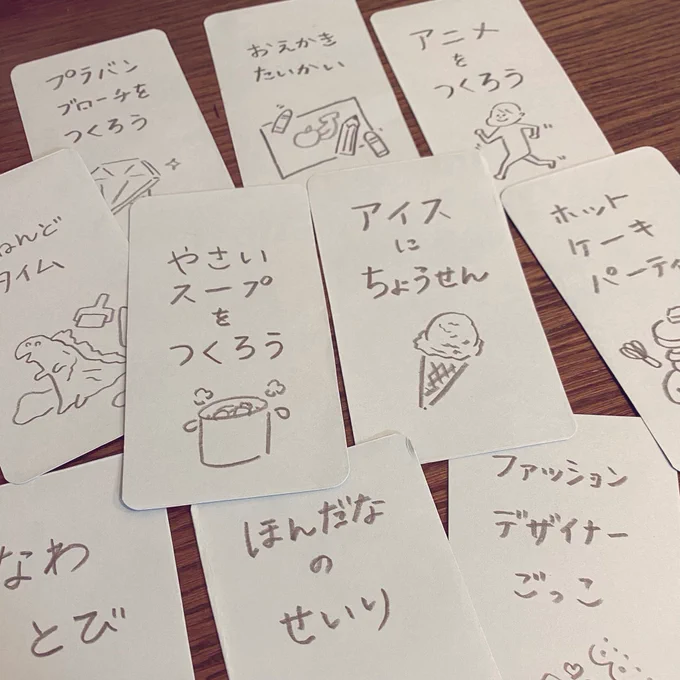 プラバン
ブローチを
つくろう
おえかき
たいかい
アニメ
を
つくろう
ねんど
タイム
やさい
スープ
を
つくろう
アイス
に
ちょうせん
ホット
ケーキ
パーティ
なわ
とび
ほんだな
の
せいり
ファッション
デザイナー
ごっこ